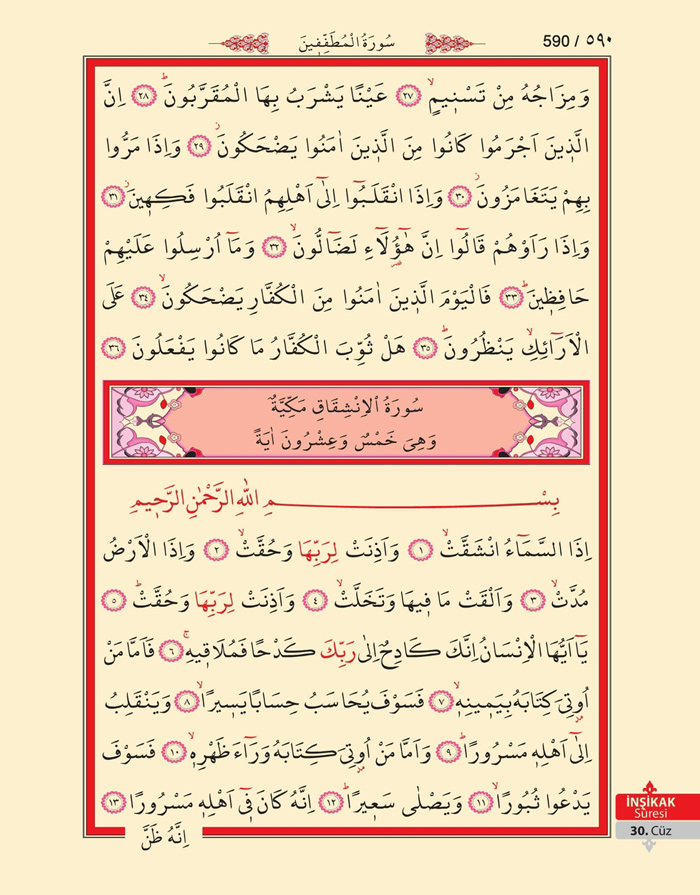 590 / ٥٩٠
سُورَةُ الْمُطَفِّفٖينَ
وَمِزَاجُهُ مِنْ تَسْنٖيمٍۙ ﴿٢٧﴾ عَيْنًا يَشْرَبُ بِهَا الْمُقَرَّبُونَۜ ﴿٢٨﴾ اِنَّ
الَّذٖينَ اَجْرَمُوا كَانُوا مِنَ الَّذٖينَ اٰمَنُوا يَضْحَكُونَؗ ﴿٢٩﴾ وَاِذَا مَرُّوا
بِهِمْ يَتَغَامَزُونَؗ ﴿٣٠﴾ وَاِذَا انْقَلَبُٓوا اِلٰٓى اَهْلِهِمُ انْقَلَبُوا فَكِهٖينَؗ ﴿٣١﴾
وَاِذَا رَاَوْهُمْ قَالُٓوا اِنَّ هٰٓؤُ۬لَٓاءِ لَضَٓالُّونَۙ ﴿٣٢﴾ وَمَٓا اُرْسِلُوا عَلَيْهِمْ
حَافِظٖينَۜ ﴿٣٣﴾ فَالْيَوْمَ الَّذٖينَ اٰمَنُوا مِنَ الْكُفَّارِ يَضْحَكُونَۙ ﴿٣٤﴾ عَلَى
الْاَرَٓائِكِۙ يَنْظُرُونَۜ ﴿٣٥﴾ هَلْ ثُوِّبَ الْكُفَّارُ مَا كَانُوا يَفْعَلُونَ ﴿٣٦﴾
سُورَةُ الْاِنْشِقَاقِ مَكِّيَّةٌ
وَهِيَ خَمْسٌ وَعِشْرُونَ اٰيَةً
بِسْمِ اللّٰهِ الرَّحْمٰنِ الرَّحٖيمِ
اِذَا السَّمَٓاءُ انْشَقَّتْۙ ﴿١﴾ وَاَذِنَتْ لِرَبِّهَا وَحُقَّتْۙ ﴿٢﴾ وَاِذَا الْاَرْضُ
مُدَّتْۙ ﴿٣﴾ وَاَلْقَتْ مَا فٖيهَا وَتَخَلَّتْۙ ﴿٤﴾ وَاَذِنَتْ لِرَبِّهَا وَحُقَّتْۜ ﴿٥﴾
يَٓا اَيُّهَا الْاِنْسَانُ اِنَّكَ كَادِحٌ اِلٰى رَبِّكَ كَدْحًا فَمُلَاقٖيهِۚ ﴿٦﴾ فَاَمَّا مَنْ
اُو۫تِيَ كِتَابَهُ بِيَمٖينِهٖۙ ﴿٧﴾ فَسَوْفَ يُحَاسَبُ حِسَابًا يَسٖيرًاۙ ﴿٨﴾ وَيَنْقَلِبُ
اِلٰٓى اَهْلِهٖ مَسْرُورًاۜ ﴿٩﴾ وَاَمَّا مَنْ اُو۫تِيَ كِتَابَهُ وَرَٓاءَ ظَهْرِهٖۙ ﴿١٠﴾ فَسَوْفَ
يَدْعُوا ثُبُورًاۙ ﴿١١﴾ وَيَصْلٰى سَعٖيرًاۜ ﴿١٢﴾ اِنَّهُ كَانَ فٖٓي اَهْلِهٖ مَسْرُورًاۜ ﴿١٣﴾
اِنَّهُ ظَنَّ
İNŞİKAK
Sûresi
30. Cüz